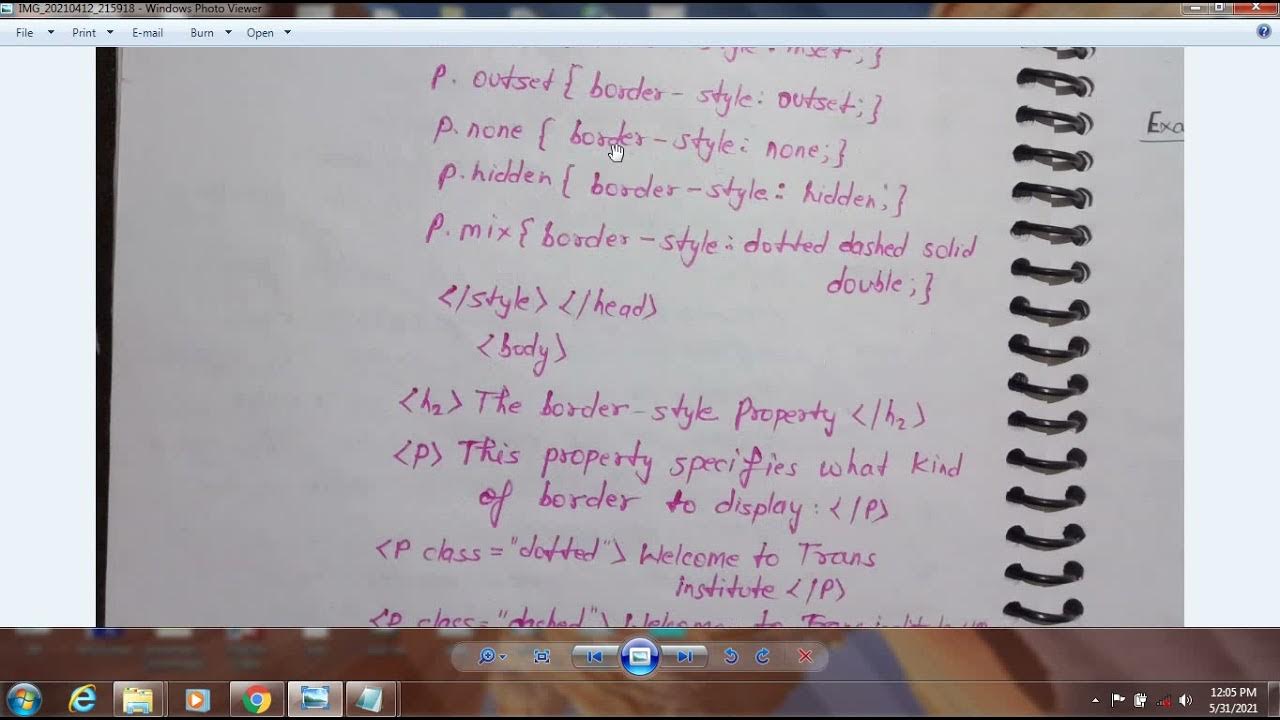 IMG_20210412_215918 - Windows Photo Viewer
File Print E-mail Burn Open
style: inset;}
p. outset { border - style: outset;}
p.none { border - style: none;}
p.hidden { border - style: hidden;}
p.mix { border - style: dotted dashed solid
double;}
</style> </head>
<body>
<h2> The border-style Property </h2>
<P> This property specifies what kind
of border to display: </P>
<P class = "dotted"> Welcome to Trans
institute </P>
<P class = "dashed"> Welcome to Trans
Exa
12:05 PM
5/31/2021